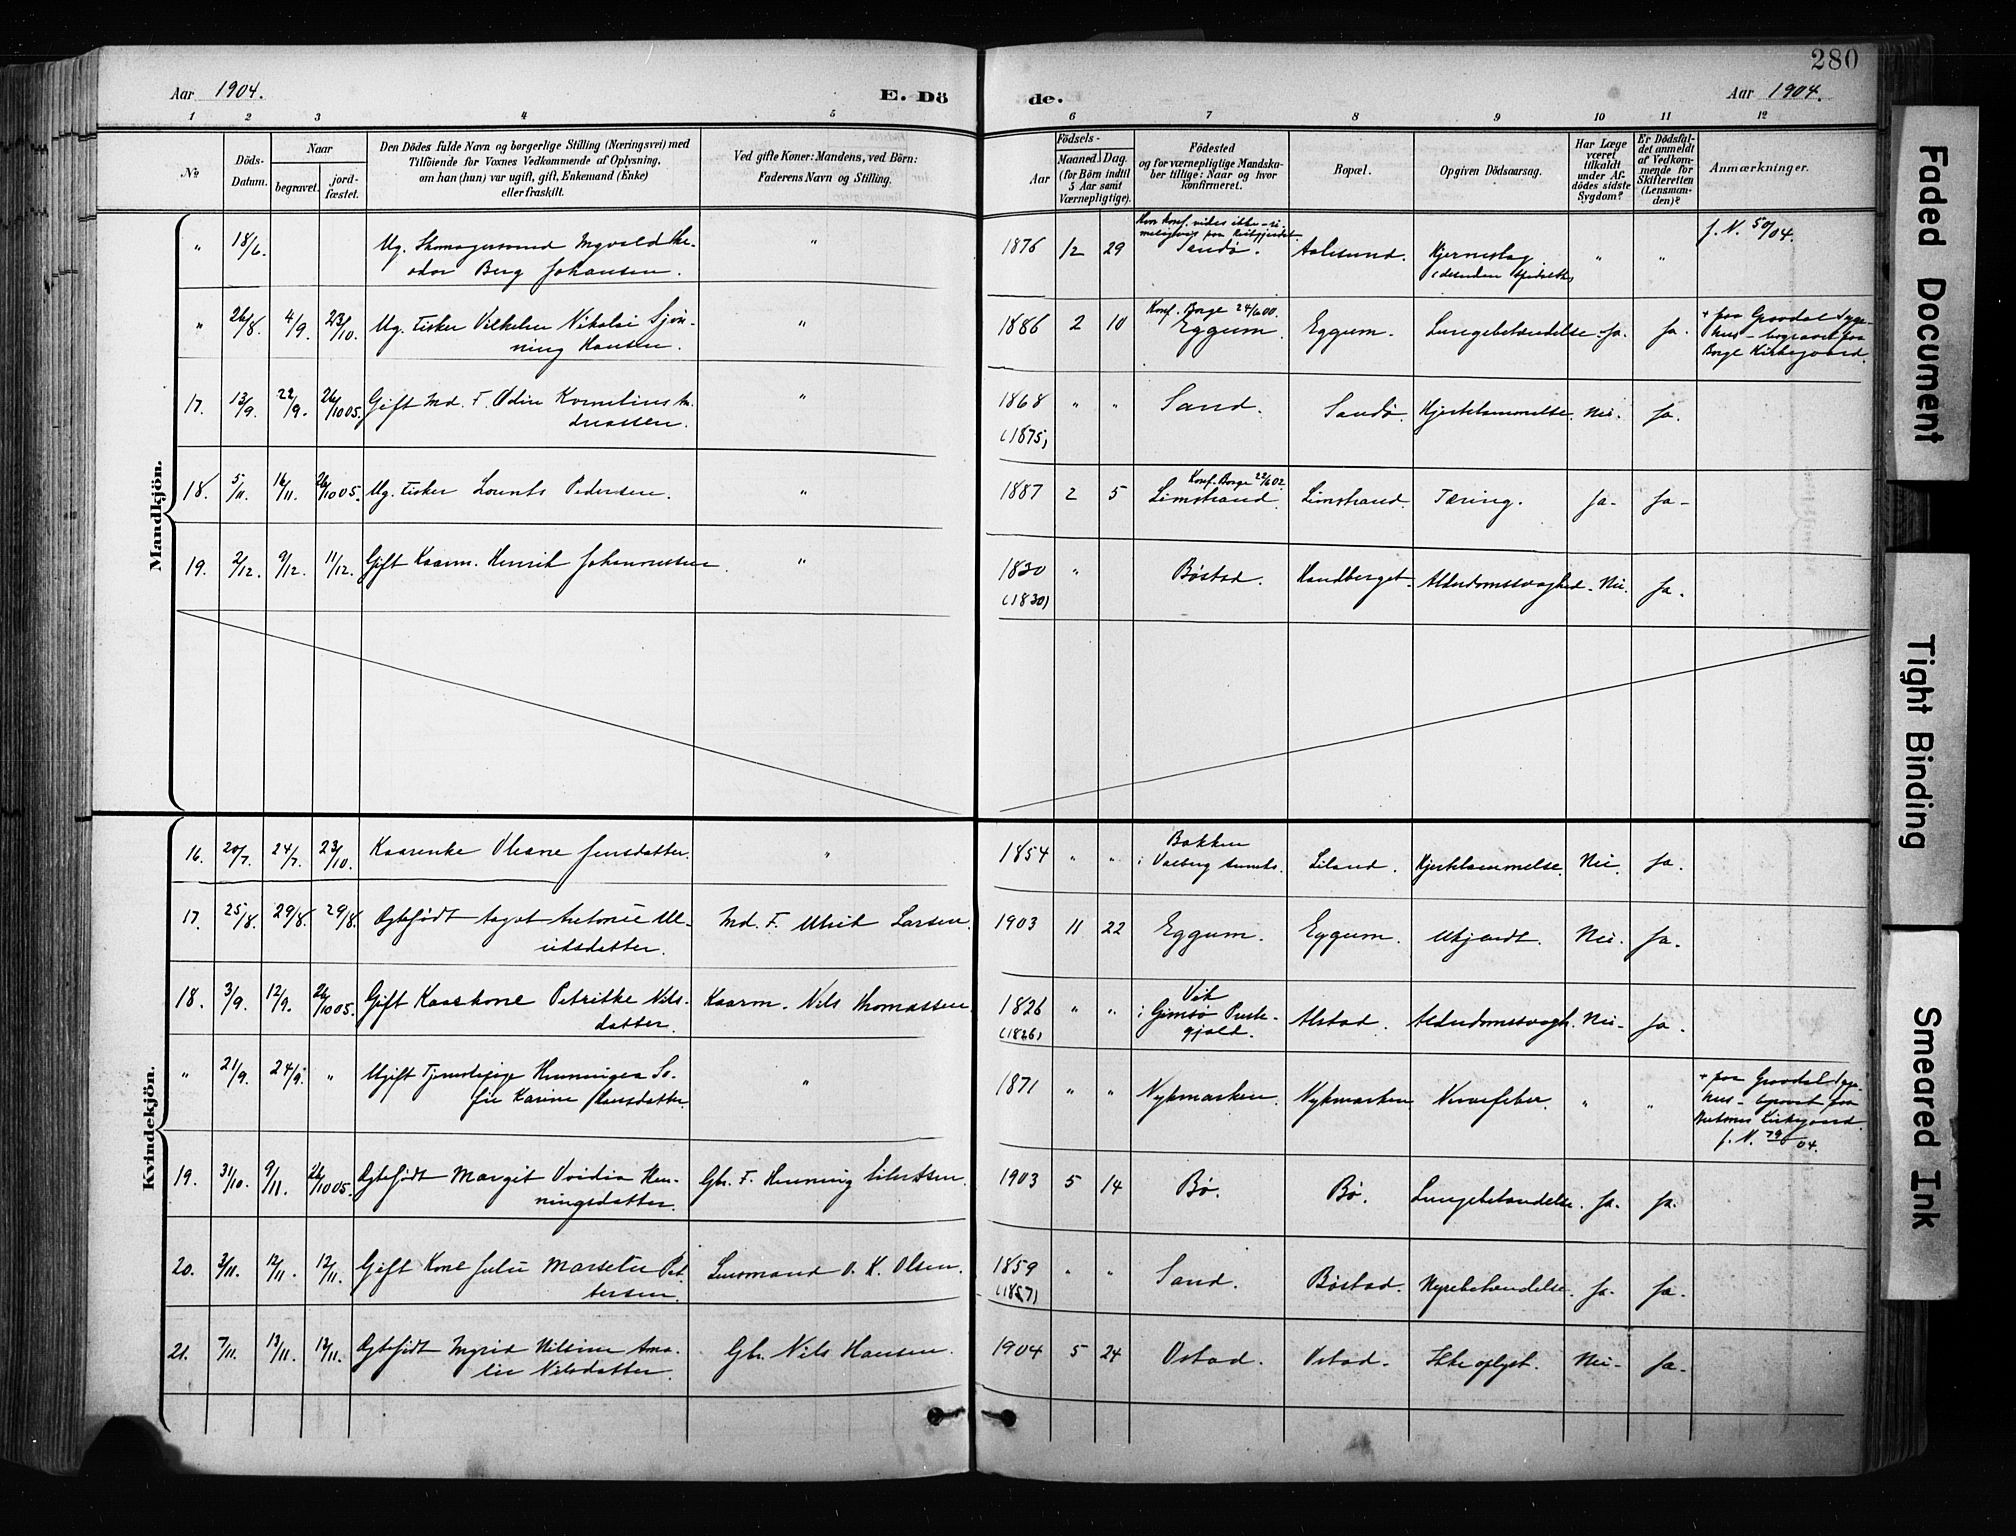 280
Aar 1904.
E. Dö
de.
Aar 1904.
1 2 3 4 5
6 7 8 9 10 11 12
№
Döds-Datum.
Naar
begravet.
jord-fæstet.
Den Dödes fulde Navn og borgerlige Stilling (Næringsvei) med
Tilföiende for Voxnes Vedkommende af Oplysning,
om han (hun) var ugift, gift, Enkemand (Enke)
eller fraskilt.
Ved gifte Koner: Mandens, ved Börn:
Faderens Navn og Stilling.
Födsels-
Aar
Maaned.
Dag.
(for Börn indtil
5 Aar samt
Værnepligtige).
Födested
og for værnepligtige Mandska-
ber tillige: Naar og hvor
konfirmeret.
Bopæl.
Opgiven Dödsaarsag.
Har Læge
været
tilkaldt
under Af-
dödes sidste
Sygdom?
Er Dödsfal-
det anmeldt
af Vedkom-
mende for
Skifteretten
(Lensman-
den)?
Anmærkninger.
Mandkjön.
" 18/6. Ug. Skomagersvend Ingvald The-
odor Berg Johansen. "
1876 12 29 Sandö. Aalesund. Hjerneslag " " f. N. 50/04.
" 26/8. 4/9. 23/10. Ug. Fisker Vilhelm Nikolai Sjøn-
ning Hansen. "
Konf. Borge 24/6 00.
1886 2 10 Eggum. Eggum. Lungebetændelse. Ja. Ja. + paa Gravdal Syge-
hus – begravet paa
Borge Kirkegaard.
17. 13/9. 22/9. 26/10 05. Gift Md. F. Odin Kornelius An-
dreassen. "
1868 " " Sand. Sandö. Hjertelammelse. Nei. Ja.
(1875)
18. 5/11. 16/11. 26/10 05. Ug. Fisker Lorents Pedersen. "
Konf. Borge 22/6 02.
1887 2 5 Limstrand. Limstrand. Tæring. Ja- Ja-
19. 2/12. 9/12. 11/12. Gift Kaarm. Henrik Johannessen. "
1830 " Böstad. Handberget. Alderdomssvaghed. Nei. Ja.
(1830)
Kvindekjön.
16. 20/7. 24/7. 23/10. Kaarenke Oleane Jensdatter. "
1854 " " Bakken
i Valberg Annex. Liland. Hjertelammelse. Nei. Ja.
17. 25/8. 29/8. 29/8. Ægtefödt Aagot Antonie Ul-
riksdatter. Md. F. Ulrik Larsen.
1903 11 22 Eggum. Eggum. Ukjendt. Nei. Ja.
18. 3/9. 12/9. 26/10 05. Gift Kaarkone Petrikke Nils-
datter. Kaarm. Nils Thomassen.
1826 " " Vik
(1826) i Gimsö Preste-
gjeld. Alstad. Alderdomssvagh. Nei- Ja-
" 21/9. 24/9. " Ugift Tjenestepige Henningea So-
fie Karine Hansdatter. "
1871 " " Nykmarken. Nykmarken. Nervefeber. " " + paa Gravdal Syge-
hus –
Kirkegaard.
f. N. 79/04.
19. 31/10. 9/11. 26/10 05. Ægtefödt Margit Ovidia Hen-
ningsdatter. Gbr. F. Henning Eilertsen.
1903 5 14 Bö. Bö. Lungebetændelse. Ja. Ja.
20. 3/11. 12/11. 12/11. Gift Kone Julie Marselie Pet-
tersen. Lensmand O. K. Olsen.
1859 " " Sand. Böstad. Nyrebetændelse. Ja- Ja-
(1857)
21. 7/11. 13/11. 13/11. Ægtefödt Ingrid Nilsine Ama-
lie Nilsdatter. Gbr. Nils Hansen.
1904 5 24 Ostad. Ostad. Ikke oplyst. Nei- Ja-
Faded Document
Tight Binding
Smeared Ink